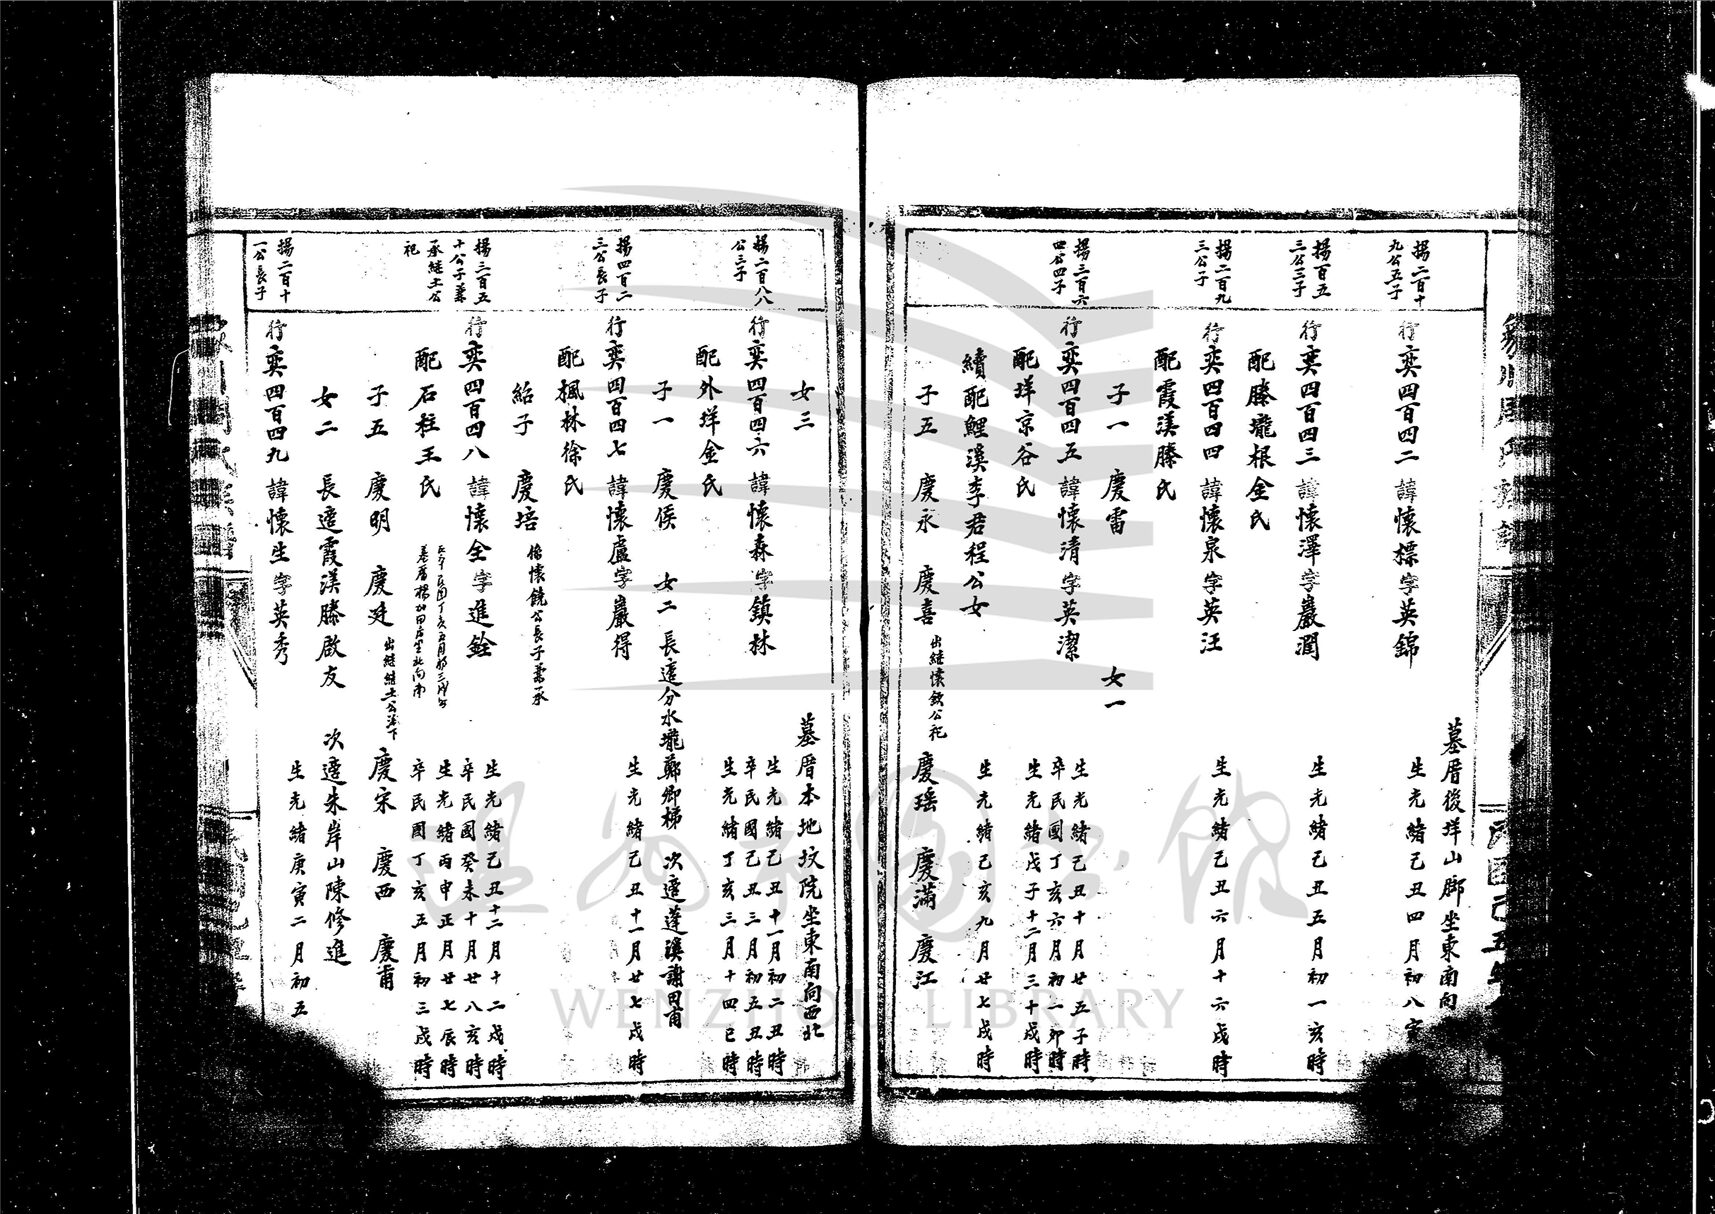 墓厝後垟山腳坐東南向
揚二百十
九公五子
行奕四百四二 諱懷標字英錦 生光緒己丑四月初八寅
揚百五
三公三子
行奕四百四三 諱懷澤字巖潤 生光緒己丑五月初一亥時
配滕壠根金氏
揚二百九
三公子
行奕四百四四 諱懷泉字英汪 生光緒己丑六月十六戌時
配霞渼滕氏
子一 慶雷 女一
揚三百六
四公四子
行奕四百四五 諱懷清字英潔 生光緒己丑十月廿五子時
卒民國丁亥六月初一卯時
配垟京谷氏 生光緒戊子十二月三十戌時
續配鯉溪李君程公女 生光緒己亥九月廿七戌時
子五 慶永 慶喜 出繼懷欽公祀 慶瑶 慶滿 慶江
墓厝本地坟院坐東南向西北
女三
揚二百八八
公三子
行奕四百四六 諱懷森字鎮林 生光緒己丑十一月初二丑時
卒民國己丑三月初五丑時
配外垟金氏 生光緒丁亥三月十四巳時
子一 慶侯 女二 長適分水壠鄭卿梯 次適蓬溪謝思甫
揚四百二
三公長子
行奕四百四七 諱懷盧字巖得 生光緒己丑十一月廿七戌時
配楓林徐氏
紹子 慶培 係懷饒公長子兼承
揚三百五
十公子兼
承繼土公
祀
行奕四百四八 諱懷全字進銓 生光緒己丑十二月十二戌時
卒民國癸未十月廿八亥時
配石柱王氏 生光緒丙申正月廿七辰時
卒民國丁亥五月初三戌時
子五 慶明 慶廷 出繼繼土公派下 慶宋 慶西 慶甫
女二 長適霞渼滕啟友 次適朱岸山陳修進
揚二百十
一公長子
行奕四百四九 諱懷生字英秀 生光緒庚寅二月初五
溫州市圖書館
WENZHOU LIBRARY